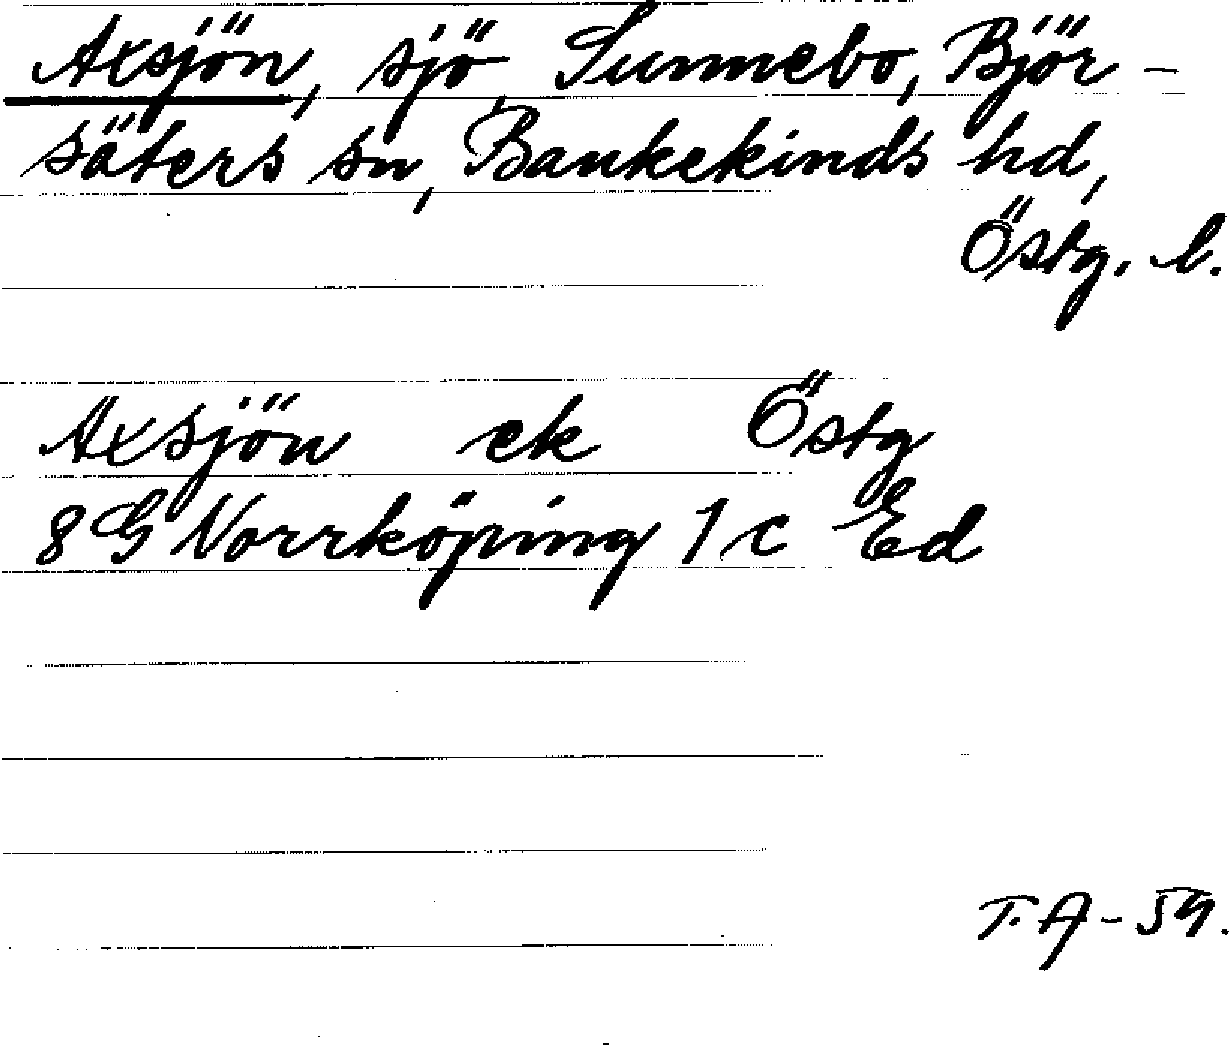 Axsjön, sjö, Sunnebo, Björ-
säters sn, Bankekinds hd,
Östg. l.
Axsjön ek Östg
8G Norrköping 1c Ed
T.A-59.